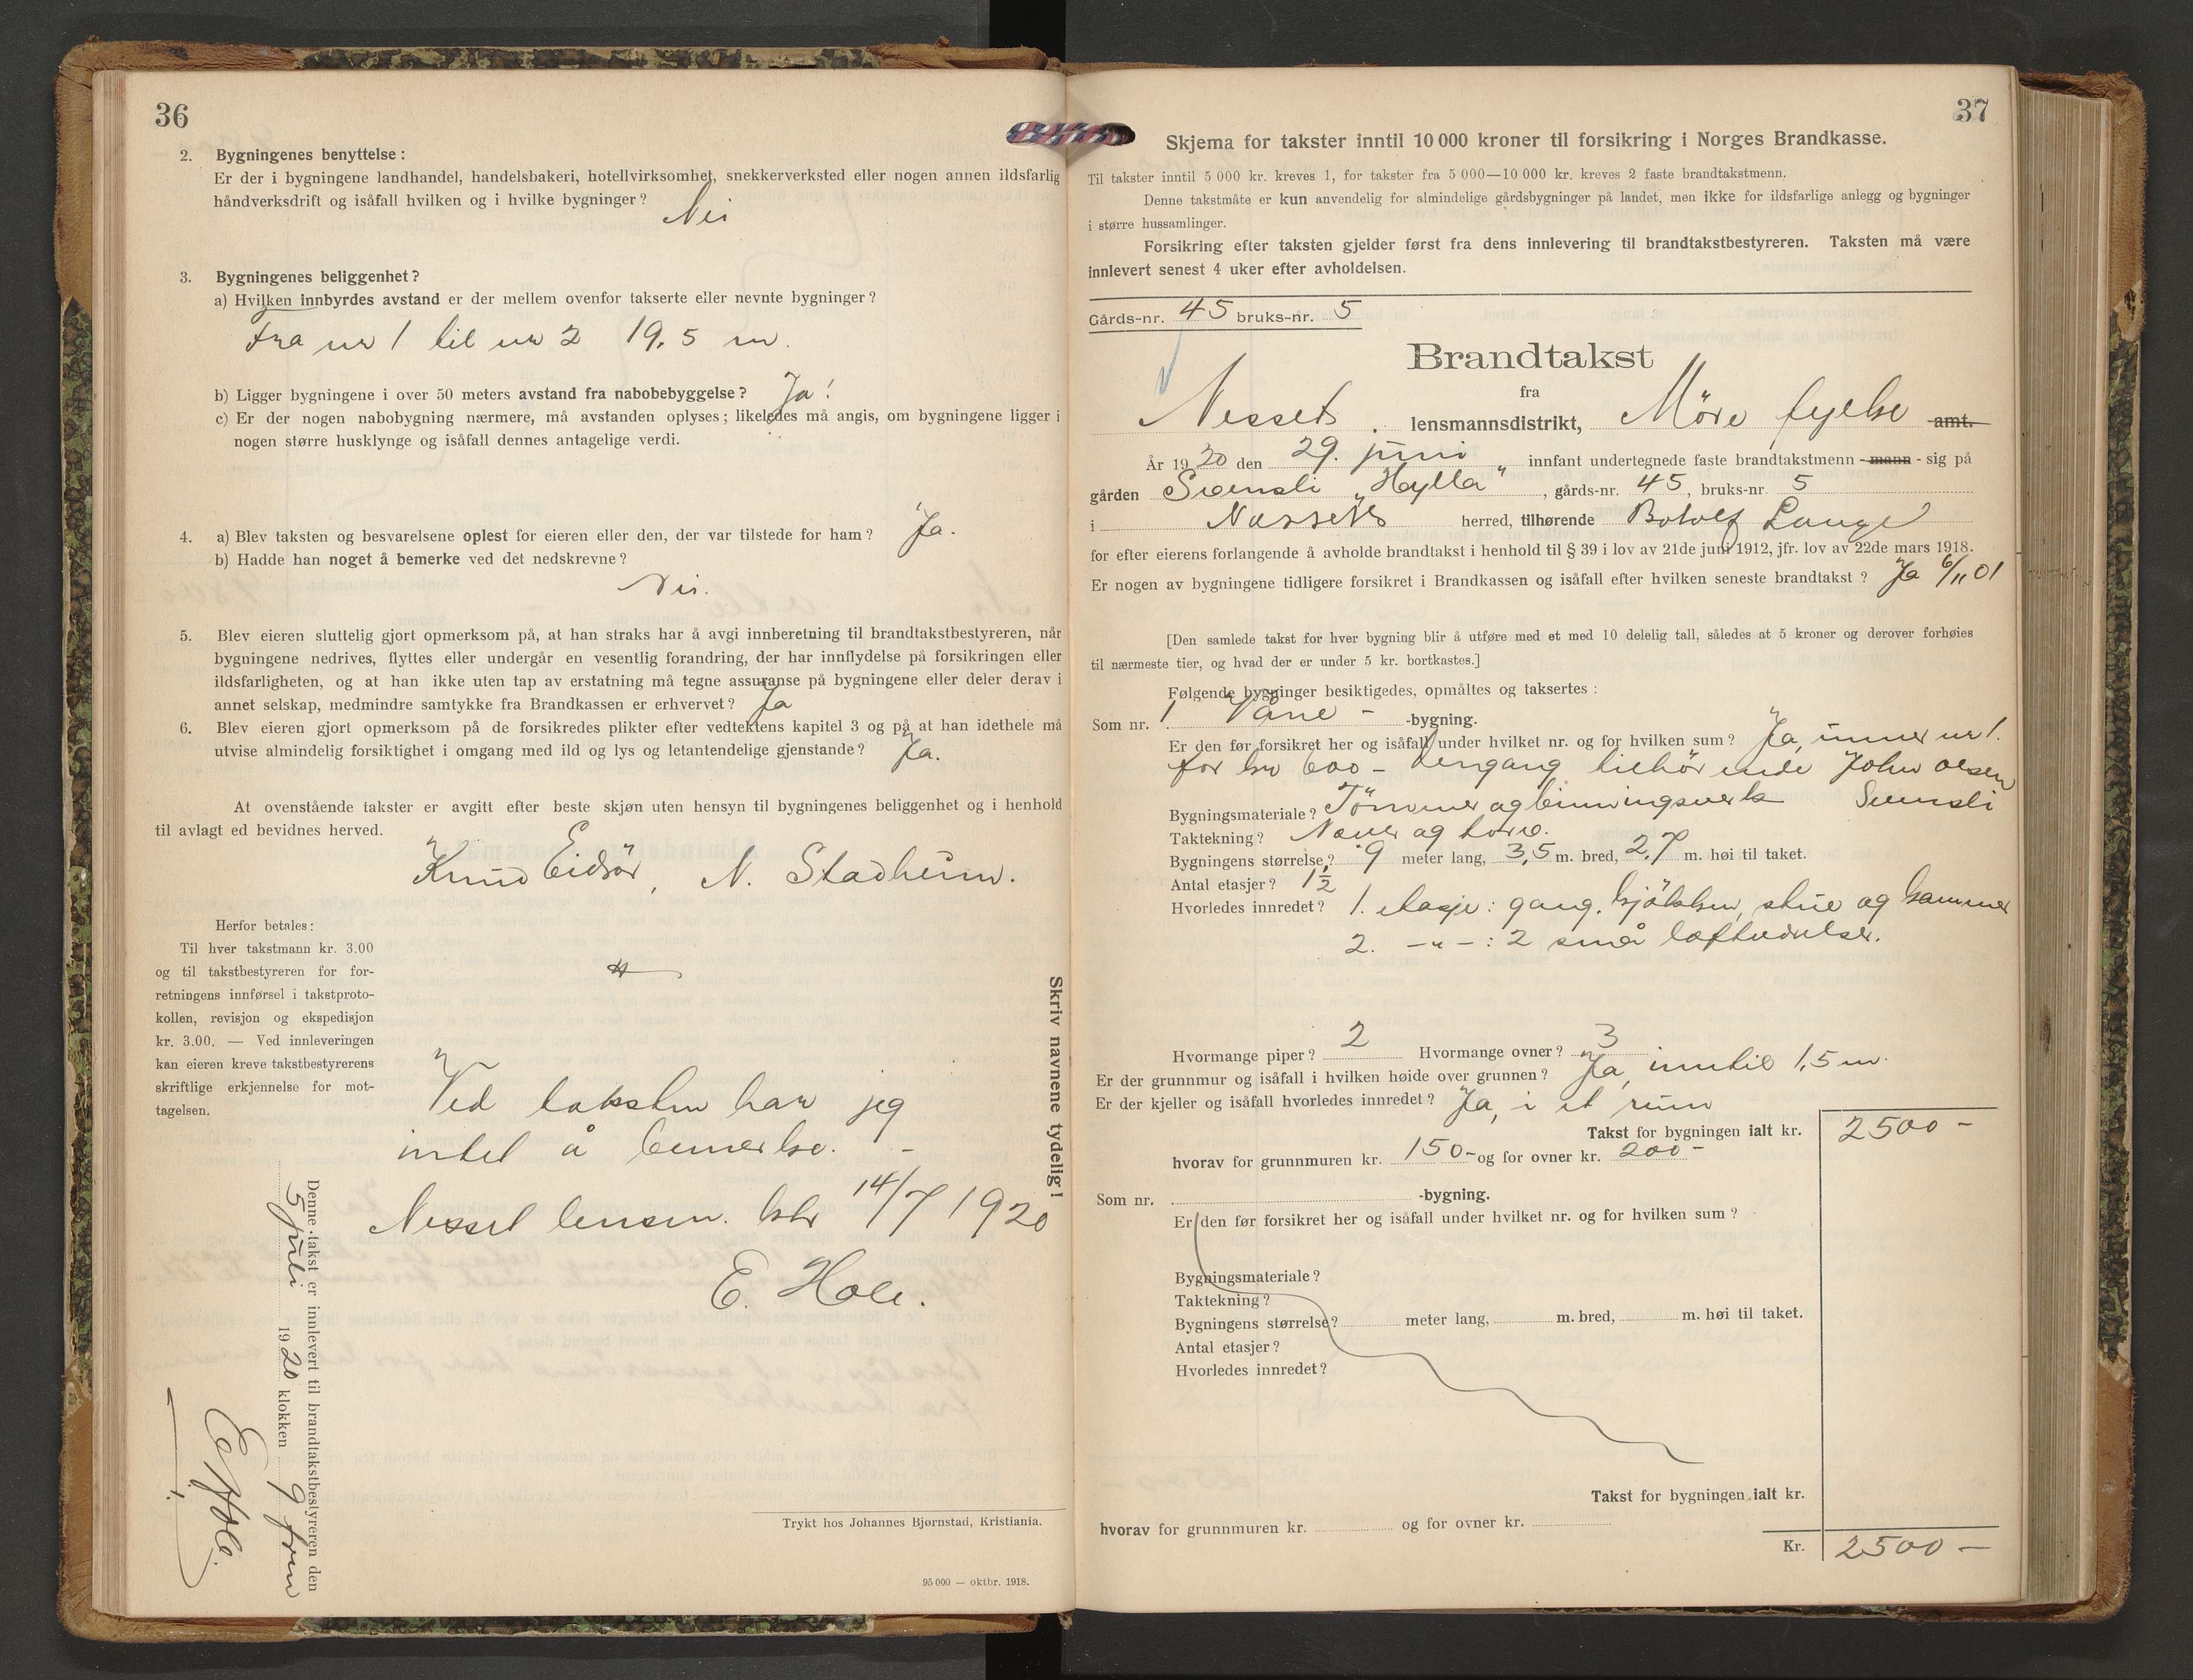 36
2. Bygningenes benyttelse :
Er der i bygningene landhandel, handelsbakeri, hotellvirksomhet, snekkerverksted eller nogen annen ildsfarlig
håndverksdrift og isåfall hvilken og i hvilke bygninger ? Nei
3. Bygningenes beliggenhet ?
a) Hvilken innbyrdes avstand er der mellem ovenfor takserte eller nevnte bygninger ?
Fra nr 1 til nr 2 19,5 m.
b) Ligger bygningene i over 50 meters avstand fra nabobebyggelse ? Ja !
c) Er der nogen nabobygning nærmere, må avstanden oplyses ; likeledes må angis, om bygningene ligger i
nogen større husklynge og isåfall dennes antagelige verdi.
4. a) Blev taksten og besvarelsene oplest for eieren eller den, der var tilstede for ham ? Ja.
b) Hadde han noget å bemerke ved det nedskrevne ?
Nei.
5. Blev eieren sluttelig gjort opmerksom på, at han straks har å avgi innberetning til brandtakstbestyreren, når
bygningene nedrives, flyttes eller undergår en vesentlig forandring, der har innflydelse på forsikringen eller
ildsfarligheten, og at han ikke uten tap av erstatning må tegne assuranse på bygningene eller deler derav i
annet selskap, medmindre samtykke fra Brandkassen er erhvervet ? Ja
6. Blev eieren gjort opmerksom på de forsikredes plikter efter vedtektens kapitel 3 og på at han idethele må
utvise almindelig forsiktighet i omgang med ild og lys og letantendelige gjenstande ? Ja.
At ovenstående takster er avgitt efter beste skjøn uten hensyn til bygningenes beliggenhet og i henhold
til avlagt ed bevidnes herved.
Knud Eidsör, N. Stadheim.
Herfor betales :
Til hver takstmann kr. 3.00
og til takstbestyreren for for-
retningens innførsel i takstproto-
kollen, revisjon og ekspedisjon
kr. 3.00. — Ved innleveringen
kan eieren kreve takstbestyrerens
skriftlige erkjennelse for mot-
tagelsen.
Ved taksten har jeg
intet å bemerke. -
Nesset lensm. ktr 14/7 1920
E. Hole.
Denne takst er innlevert til brandtakstbestyreren den
5 juli 1920 klokken 9 fm
E Hole.
Skriv navnene tydelig !
Trykt hos Johannes Bjørnstad, Kristiania.
95 000 — oktbr. 1918.
37
Skjema for takster inntil 10 000 kroner til forsikring i Norges Brandkasse.
Til takster inntil 5 000 kr. kreves 1, for takster fra 5 000—10 000 kr. kreves 2 faste brandtakstmenn.
Denne takstmåte er kun anvendelig for almindelige gårdsbygninger på landet, men ikke for ildsfarlige anlegg og bygninger
i større hussamlinger.
Forsikring efter taksten gjelder først fra dens innlevering til brandtakstbestyreren. Taksten må være
innlevert senest 4 uker efter avholdelsen.
Gårds-nr. 45 bruks-nr. 5
Brandtakst
fra
Nessets lensmannsdistrikt, Möre fylke amt.
År 1920 den 29. juni innfant undertegnede faste brandtakstmenn - mann - sig på
gården Svensli "Hylla", gårds-nr. 45, bruks-nr. 5
i Nessets herred, tilhørende Botolf Lange
for efter eierens forlangende å avholde brandtakst i henhold til § 39 i lov av 21de juni 1912, jfr. lov av 22de mars 1918.
Er nogen av bygningene tidligere forsikret i Brandkassen og isåfall efter hvilken seneste brandtakst ? Ja 6/11 01
[Den samlede takst for hver bygning blir å utføre med et med 10 delelig tall, således at 5 kroner og derover forhøies
til nærmeste tier, og hvad der er under 5 kr. bortkastes.]
Følgende bygninger besiktigedes, opmåltes og taksertes :
Som nr. 1 Våne - -bygning.
Er den før forsikret her og isåfall under hvilket nr. og for hvilken sum ? Ja, under nr 1.
for kr 600 - dengang tilhörende John Olsen
Svensli
Bygningsmateriale ? Tömmer og binningsverk
Taktekning ? Never og torv.
Bygningens størrelse ? 9 meter lang, 3,5 m. bred, 2,7 m. høi til taket.
Antal etasjer ? 1 1/2
Hvorledes innredet ? 1. etasje : gang, kjökken, stue og kammer
2. -"- : 2 små loftværelser.
Hvormange piper ? 2 Hvormange ovner ? 3
Er der grunnmur og isåfall i hvilken høide over grunnen ? Ja, inntil 1,5 m.
Er der kjeller og isåfall hvorledes innredet ? Ja, i et rum
Takst for bygningen ialt kr. 2500 -
hvorav for grunnmuren kr. 150- og for ovner kr. 200 -
Som nr. -bygning.
Er den før forsikret her og isåfall under hvilket nr. og for hvilken sum ?
Bygningsmateriale ?
Taktekning ?
Bygningens størrelse ? meter lang, m. bred, m. høi til taket.
Antal etasjer ?
Hvorledes innredet ?
Takst for bygningen ialt kr.
hvorav for grunnmuren kr. og for ovner kr.
Kr. 2500 -